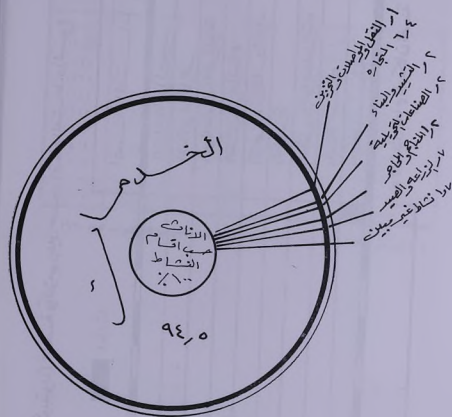 الخدمات
٩٤٫٥
الاناث
حسب اقسام
النشاط
١٠٠٪
النقل والمواصلات والتخزين
٦٫٤ التجارة
التشييد والبناء
الصناعات التحويلية
المناجم والمحاجر
الزراعة والصيد
نشاط غير مبين